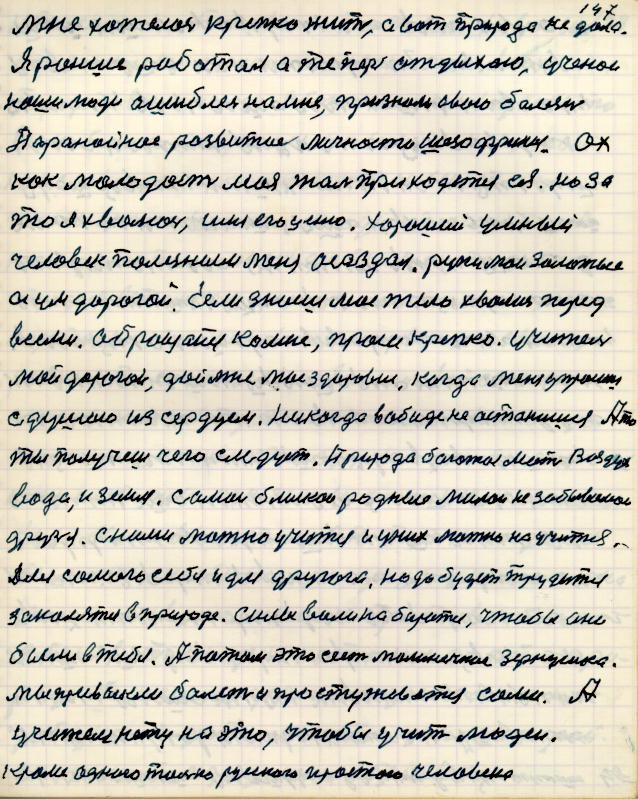 147
мне хотелося крепко жить, а вот природа не дала.
Я раньше работал а теперь отдыхаю, ученои
наши люди ошиблся на мне, признали свою болезнь
Паранойное развитие личности шизофрения. Ох
как молодость моя жаль приходится ея. но за
то я хвалюся, или ецению. Хороший умный
человек полезным меня создал. руки мои золотые
а ум дорогой. Если знаеш мое тело хвалиш перед
всеми. обращайся ко мне, проси крепко. учитель
мой дорогой, дай мне мое здоровье, когда меня упросиш
с душою из сердцем. Никогда в обиде не останишся А то
ты получеш чего следует. Природа богатое мать воздух
вода, и земля. самои близкои родные милои не забываемои
друзя. с ними можно учится и у них можно научится.
для самого себя и для другога, надо будет трудится
заколятся в природе. силы воли набирати, чтобы они
были в тебя. А потом это есть маленичкое зернушка.
мы привыкли болеть и простуживатся сами. А
учителя нету на это, чтобы учить людеи.
кроме одного только руского простого человека